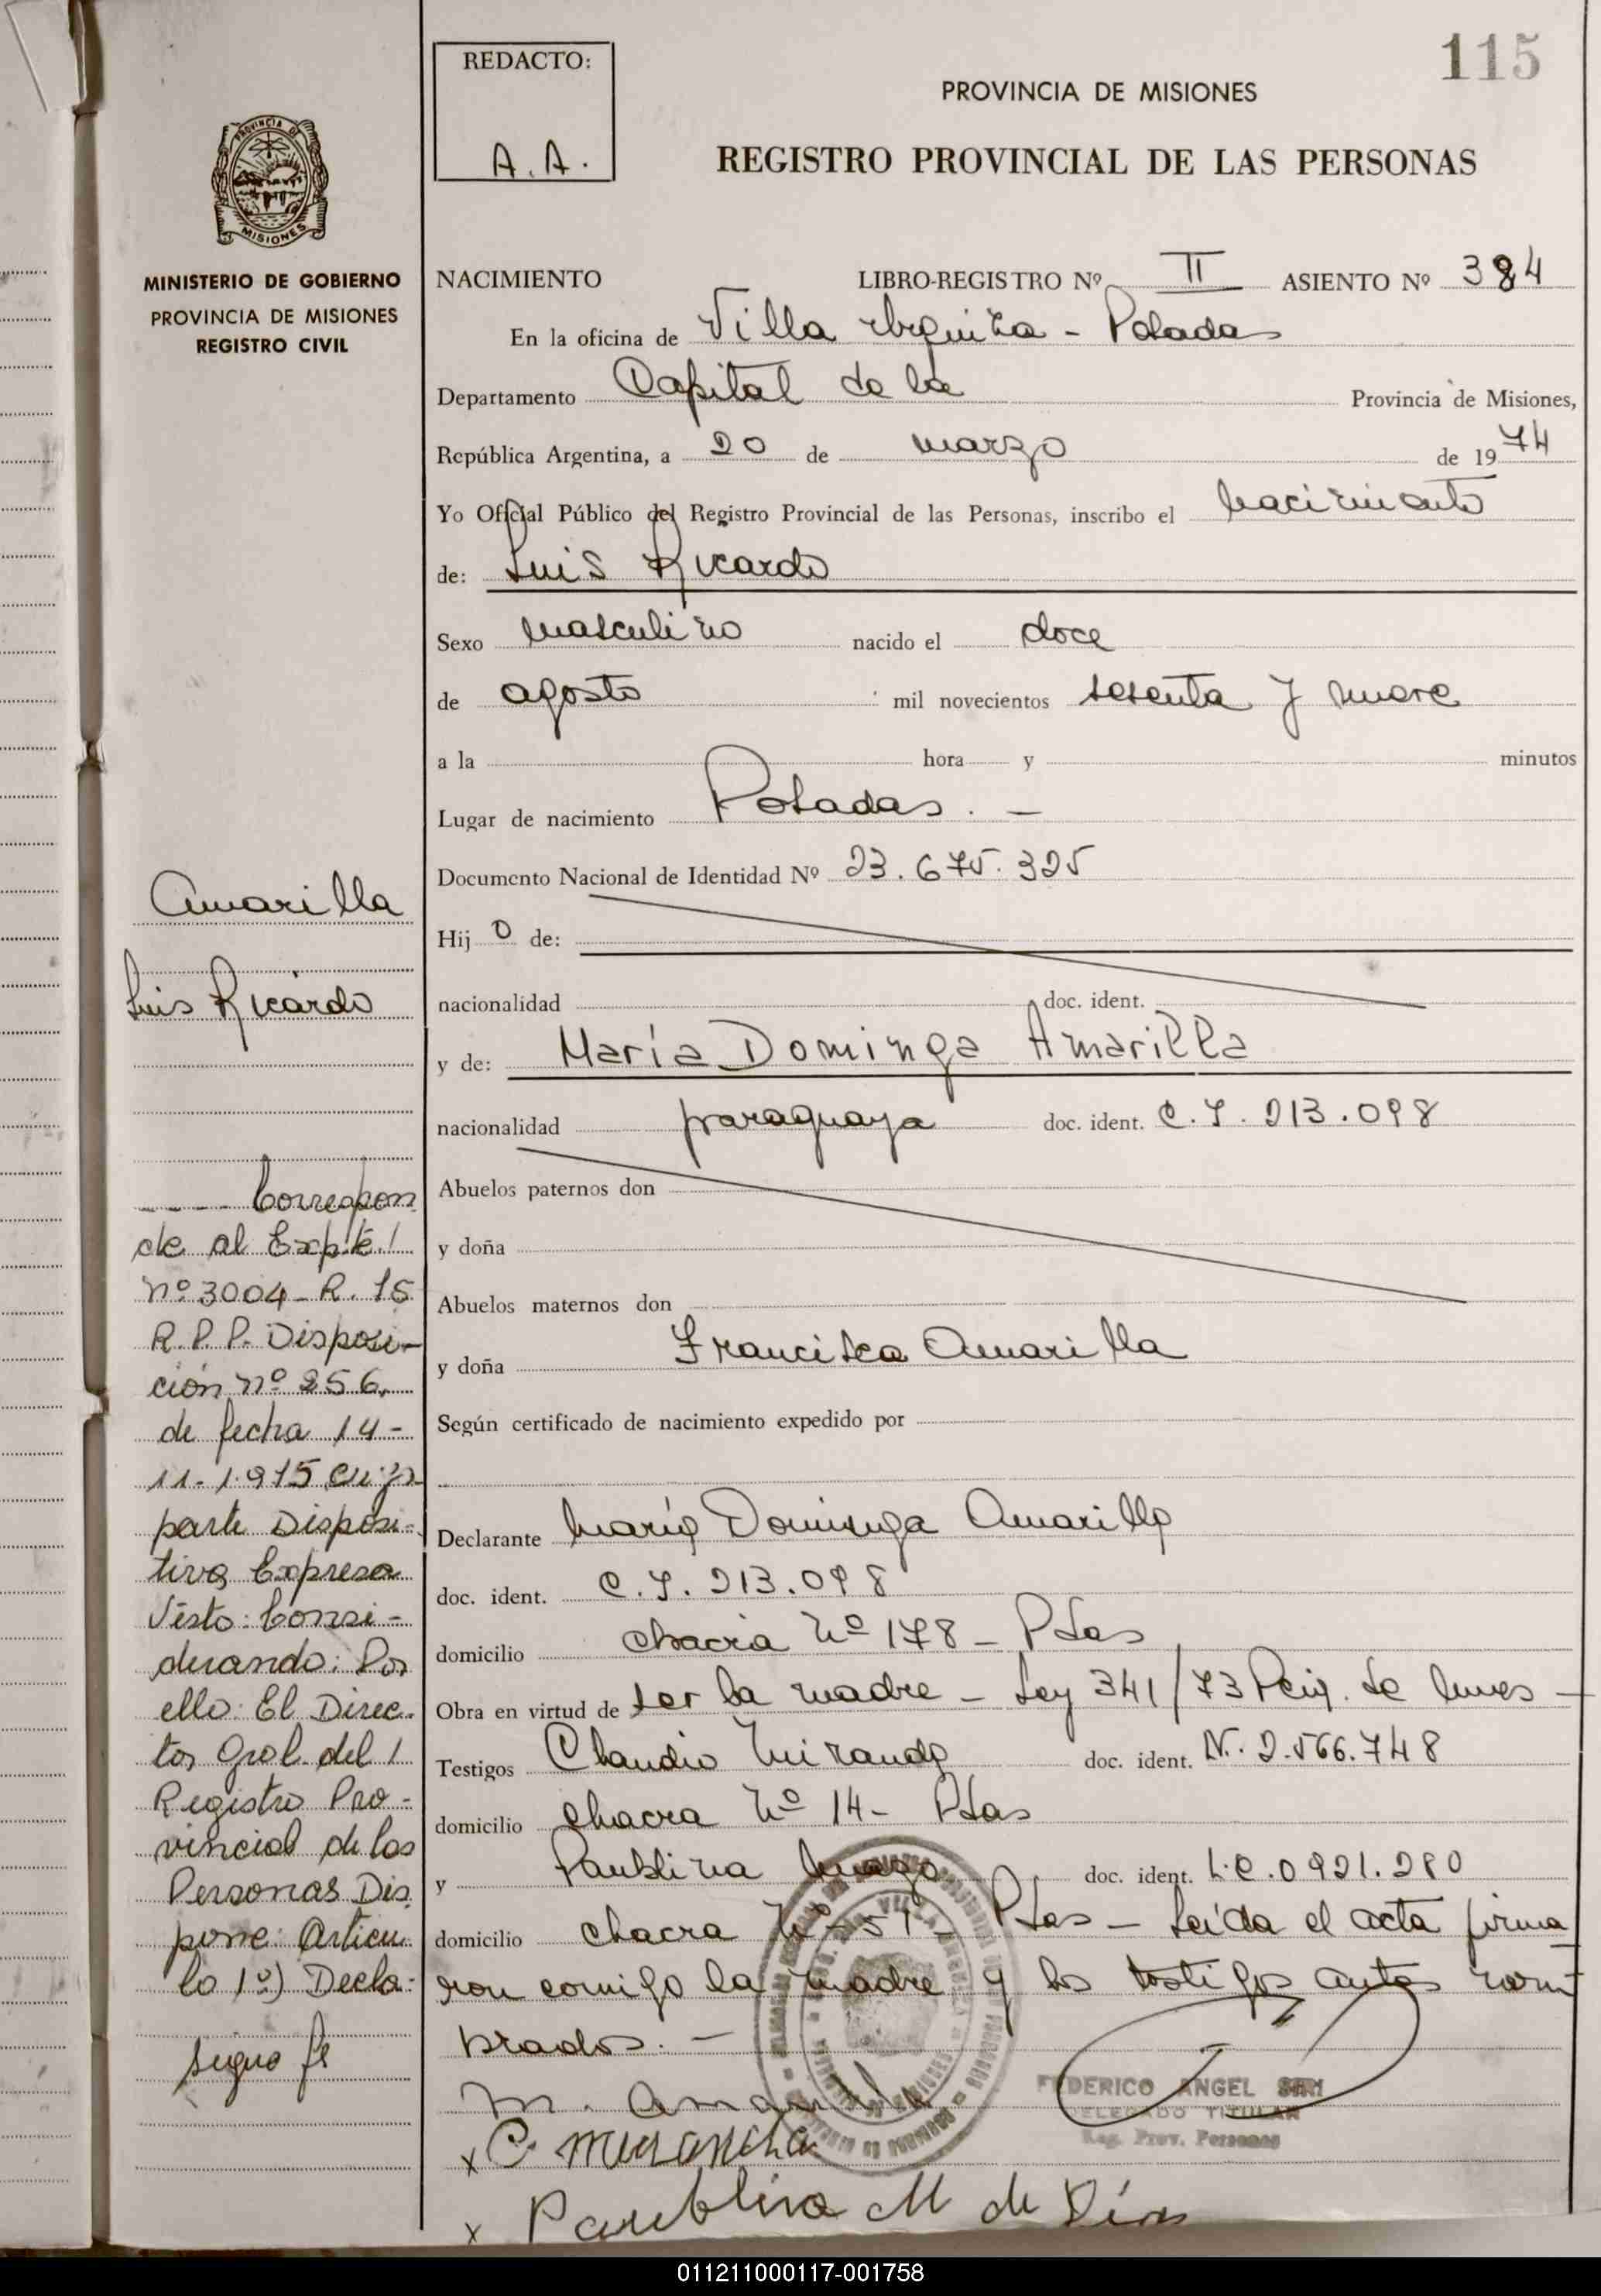 115
REDACTO:
A.A.
PROVINCIA DE MISIONES
REGISTRO PROVINCIAL DE LAS PERSONAS
PROVINCIA DE
MISIONES
MINISTERIO DE GOBIERNO
PROVINCIA DE MISIONES
REGISTRO CIVIL
NACIMIENTO LIBRO-REGISTRO Nº II ASIENTO Nº 384
En la oficina de Villa Urquiza - Posadas
Departamento Capital de la Provincia de Misiones,
República Argentina, a 20 de marzo de 1974
Yo Oficial Público del Registro Provincial de las Personas, inscribo el nacimiento
de: Luis Ricardo
Sexo masculino nacido el doce
de agosto mil novecientos sesenta y nueve
a la hora y minutos
Lugar de nacimiento Posadas. —
Documento Nacional de Identidad Nº 23.675.325
Hijo de:
nacionalidad doc. ident.
y de: María Dominga Amarilla
nacionalidad paraguaya doc. ident. C.I. 213.098
Abuelos paternos don
y doña
Abuelos maternos don
y doña Francisca Amarilla
Según certificado de nacimiento expedido por
Declarante María Dominga Amarilla
doc. ident. C.I. 213.098
domicilio chacra Nº 178 - Pdas
Obra en virtud de ser la madre - Ley 341/73
Testigos Claudio Miranda doc. ident. N. 2.566.748
domicilio chacra Nº 14 - Pdas
y Paublina doc. ident. L.C. 0921.280
domicilio chacra Nº 51 - Pdas - Leída el acta firma
ron comigo la madre y los testigos antes nom-
brados. —
M. Amarilla
x C. Miranda
x Paublina M de
FEDERICO ANGEL
DELEGADO TITULAR
Reg. Prov. Personas
Amarilla
Luis Ricardo
Correspon
de al Expte.
nº 3004 - R. 75
R.P.P. Disposi-
ción nº 256,
de fecha 14-
11-1975 cuya
parte Disposi-
tiva Expresa
Visto: Consi-
derando: Por
ello: El Direc-
tor Gral. del
Registro Pro-
vincial de las
Personas Dis
pone: Articu
lo 1º) Decla-
sigue
011211000117-001758